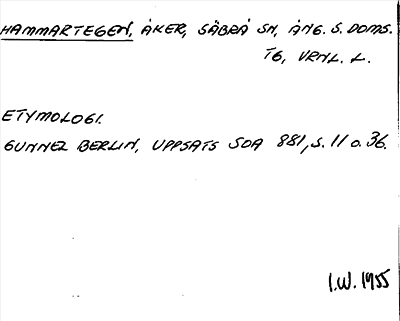 HAMMARTEGEN, ÅKER, SÄBRÅ SN, ÅNG. S. DOMS.
TG, VRNL. L.
ETYMOLOGI.
GUNNEL BERLIN, UPPSATS SOA 881, S. 11 o. 36.
I.W. 1955